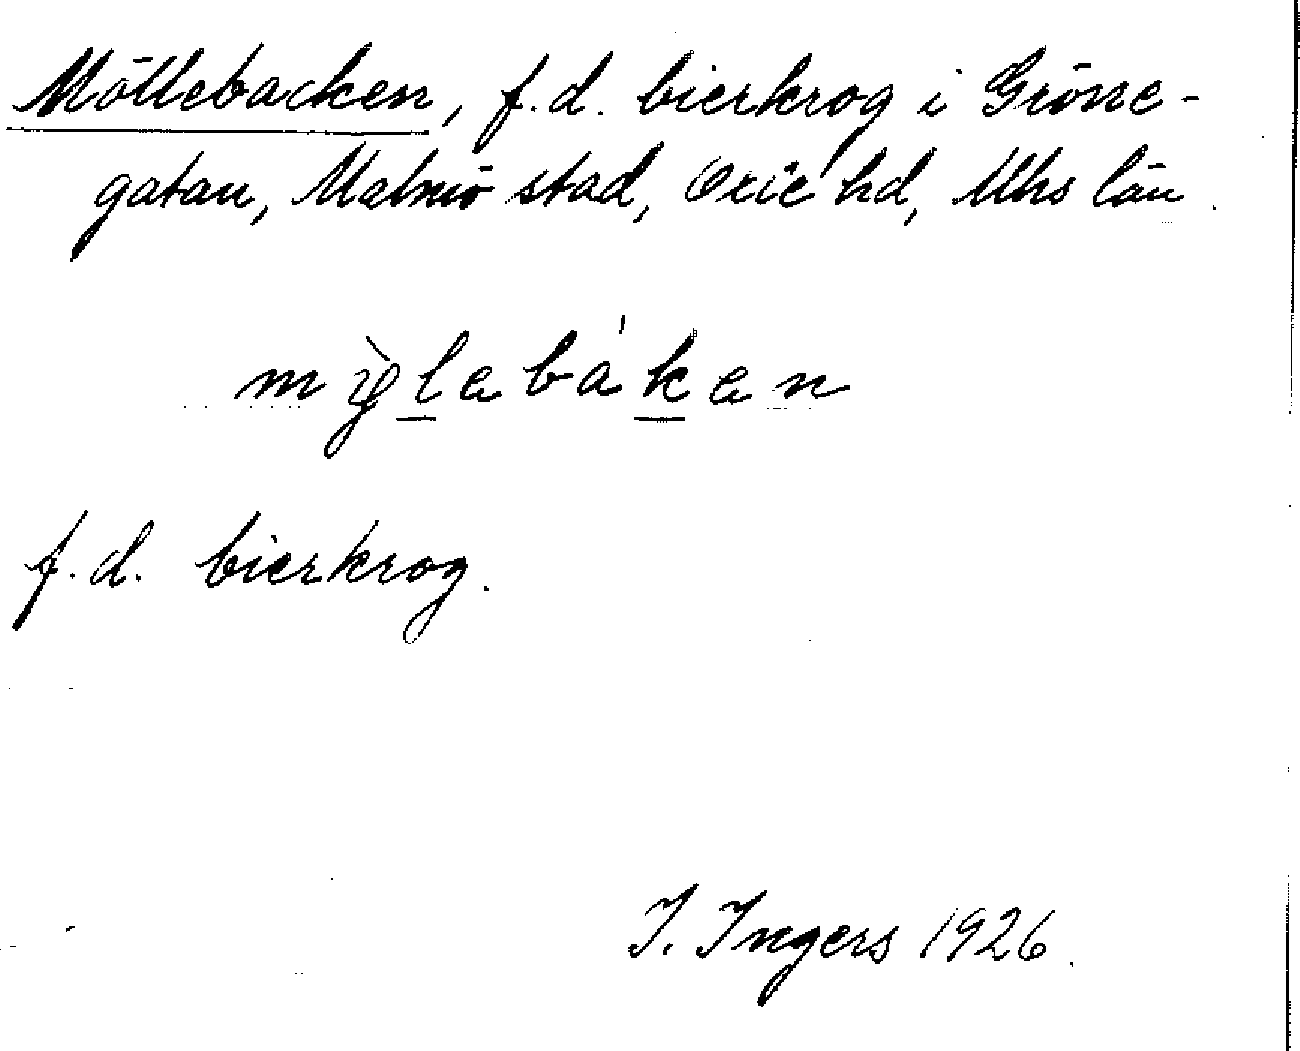 Möllebacken, f.d. bierkrog i Gröne-
gatan, Malmö stad, Oxie hd, Mhs län.
f.d. bierkrog.
I. Ingers 1926.